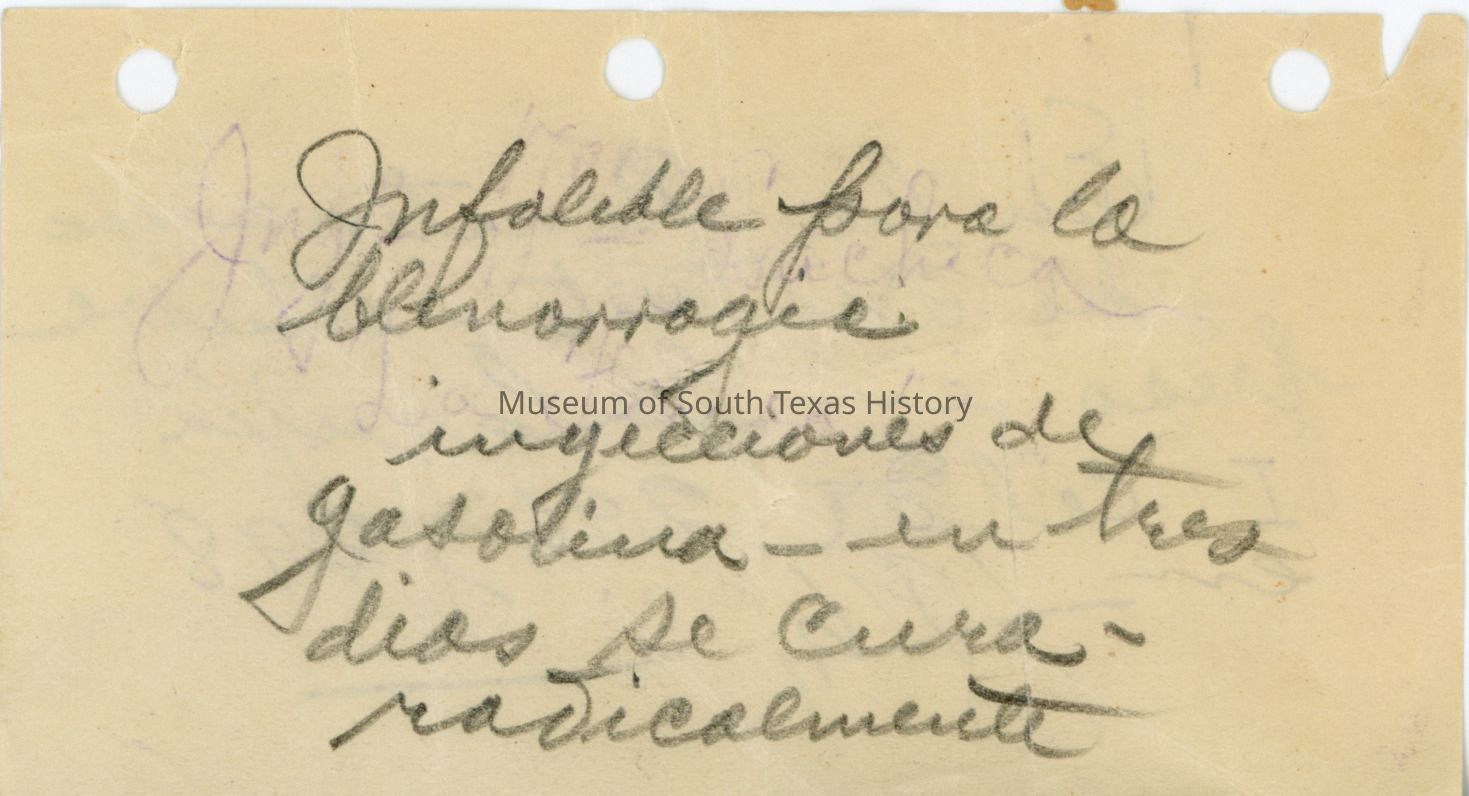 Infalible para la
blenorragia.
Museum of South Texas History
inyecciones de
gasolina - en tres
dias se cura -
radicalmente